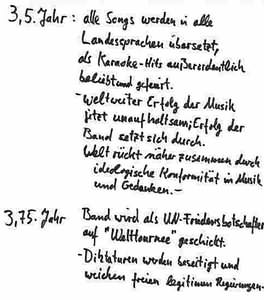 3,5. Jahr : alle Songs werden in alle
Landessprachen übersetzt,
als Karaoke-Hits außerordentlich
beliebt und gefeiert.
- weltweiter Erfolg der Musik
jetzt unaufhaltsam; Erfolg der
Band setzt sich durch.
Welt rückt näher zusammen durch
ideologische Konformität in Musik
und Gedanken. -
3,75. Jahr Band wird als UN-Friedensbotschafter
auf "Welttournee" geschickt.
- Diktaturen werden beseitigt und
weichen freien legitimen Regierungen -